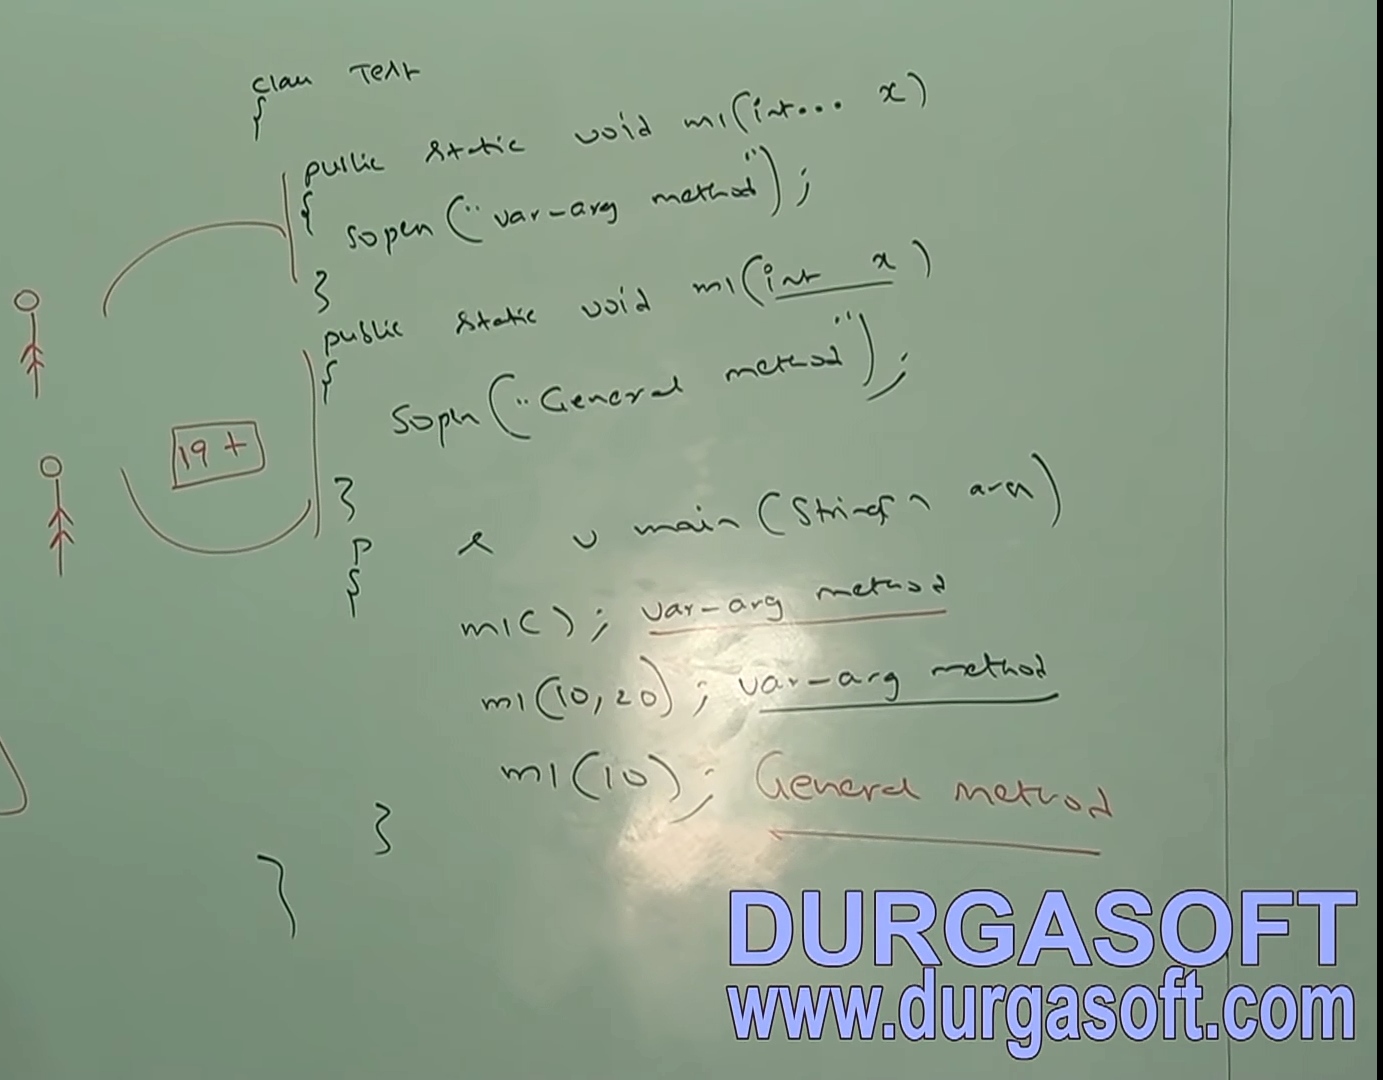 class Test
{
public static void m1(int... x)
{
sopln("var-arg method");
}
public static void m1(int x)
{
sopln("General method");
19+
}
p s v main(String[] args)
{
m1(); var-arg method
m1(10,20); var-arg method
m1(10); General method
}
}
DURGASOFT
www.durgasoft.com